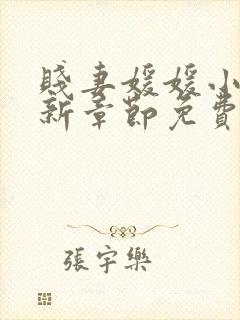 賤妻媛媛小
新章節免費
張宇樂